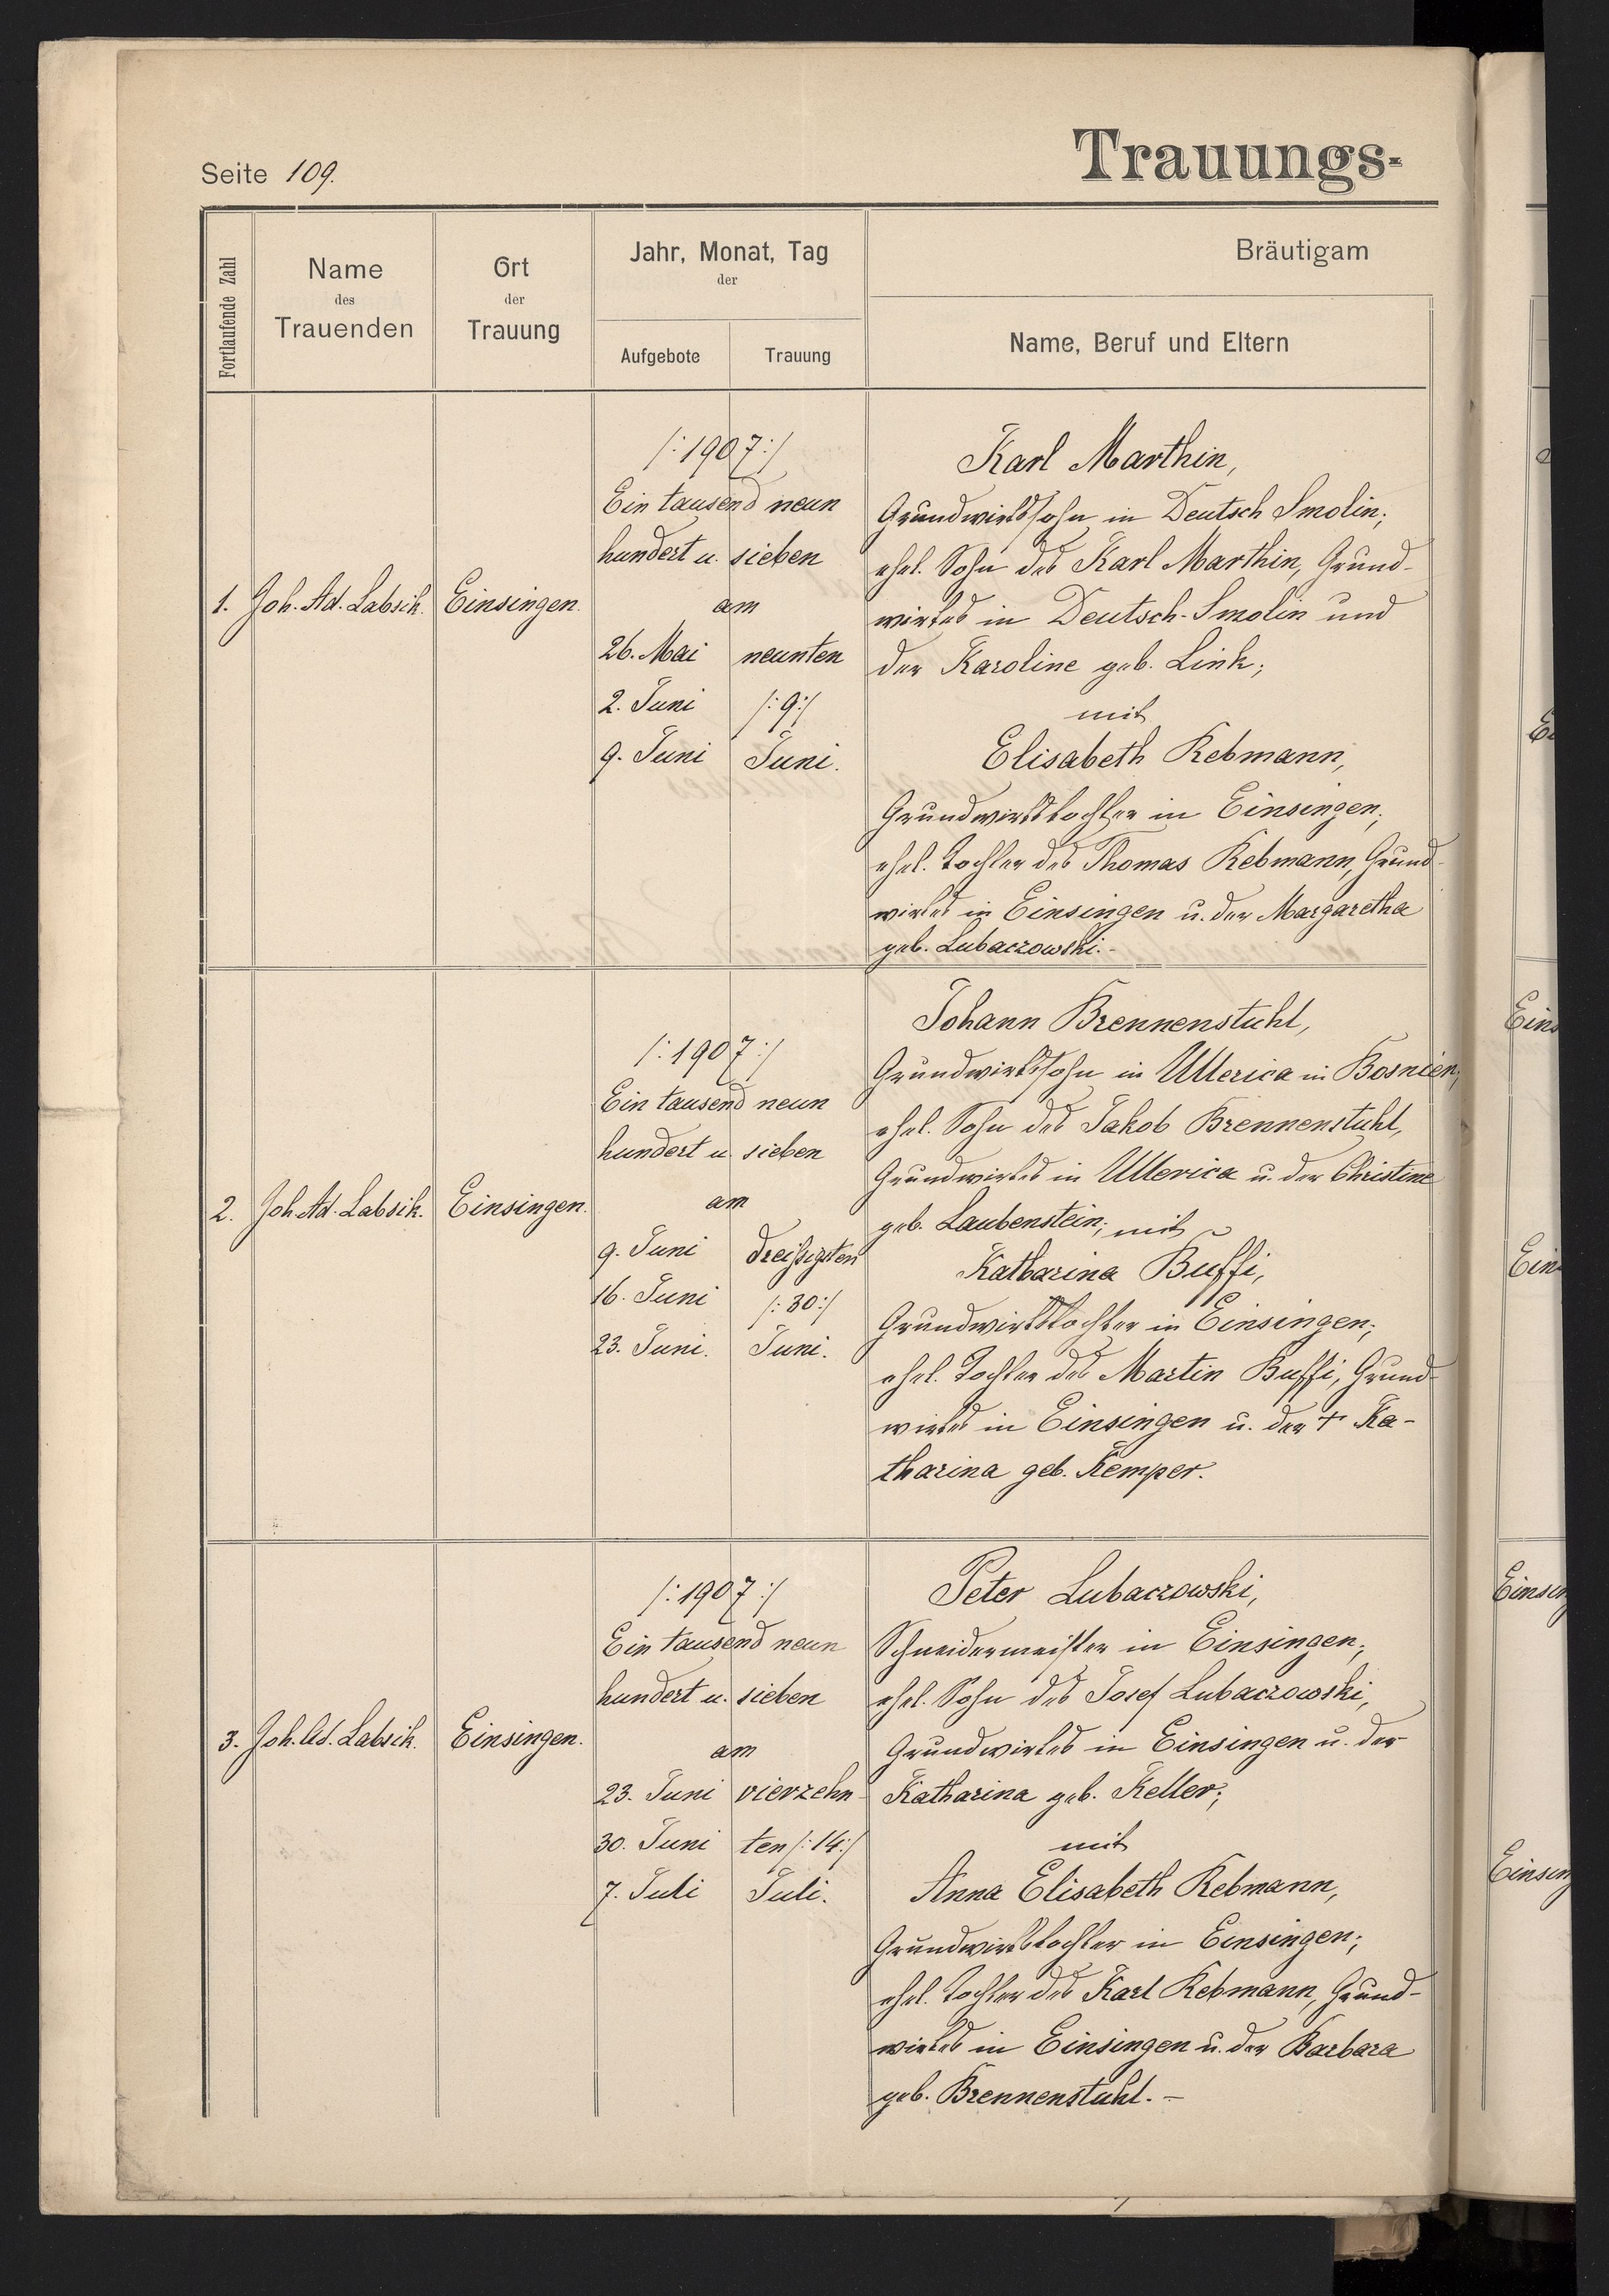 Seite 109.
Trauungs-
Fortlaufende Zahl
Name
des
Trauenden
Ort
der
Trauung
Jahr, Monat, Tag
der
Aufgebote
Trauung
Bräutigam
Name, Beruf und Eltern
1. Joh. Ad. Labsik. Einsingen.
/:1907:/
Ein tausend neun
hundert u. sieben
am
26. Mai neunten
2. Juni /:9:/
9. Juni Juni.
Karl Marthin,
Grundwirtssohn in Deutsch Smolin;
ehel. Sohn des Karl Marthin, Grund-
wirtes in Deutsch-Smolin und
der Karoline geb. Link;
mit
Elisabeth Rebmann,
Grundwirtstochter in Einsingen;
ehel. Tochter des Thomas Rebmann, Grund-
wirtes in Einsingen u. der Margaretha
geb. Lubaczowski.-
2. Joh. Ad. Labsik. Einsingen.
/:1907:/
Ein tausend neun
hundert u. sieben
am
9. Juni dreißigsten
16. Juni /:30:/
23. Juni. Juni.
Johann Brennenstuhl,
Grundwirtssohn in Ullerica in Bosnien;
ehel. Sohn des Jakob Brennenstuhl,
Grundwirtes in Ullerica u. der Christine
geb. Laubenstein; mit
Katharina Buffi,
Grundwirtstochter in Einsingen;
ehel. Tochter des Martin Buffi, Grund-
wirtes in Einsingen u. der + Ka-
tharina geb. Kemper.
3. Joh. Ad. Labsik. Einsingen.
/:1907:/
Ein tausend neun
hundert u. sieben
am
23. Juni vierzehn-
30. Juni ten /:14:/
7. Juli Juli.
Peter Lubaczowski,
Schneidermeister in Einsingen;
ehel. Sohn des Josef Lubaczowski,
Grundwirtes in Einsingen u. der
Katharina geb. Keller;
mit
Anna Elisabeth Rebmann,
Grundwirtstochter in Einsingen;
ehel. Tochter des Karl Rebmann, Grund-
wirtes in Einsingen u. der Barbara
geb. Brennenstuhl.-